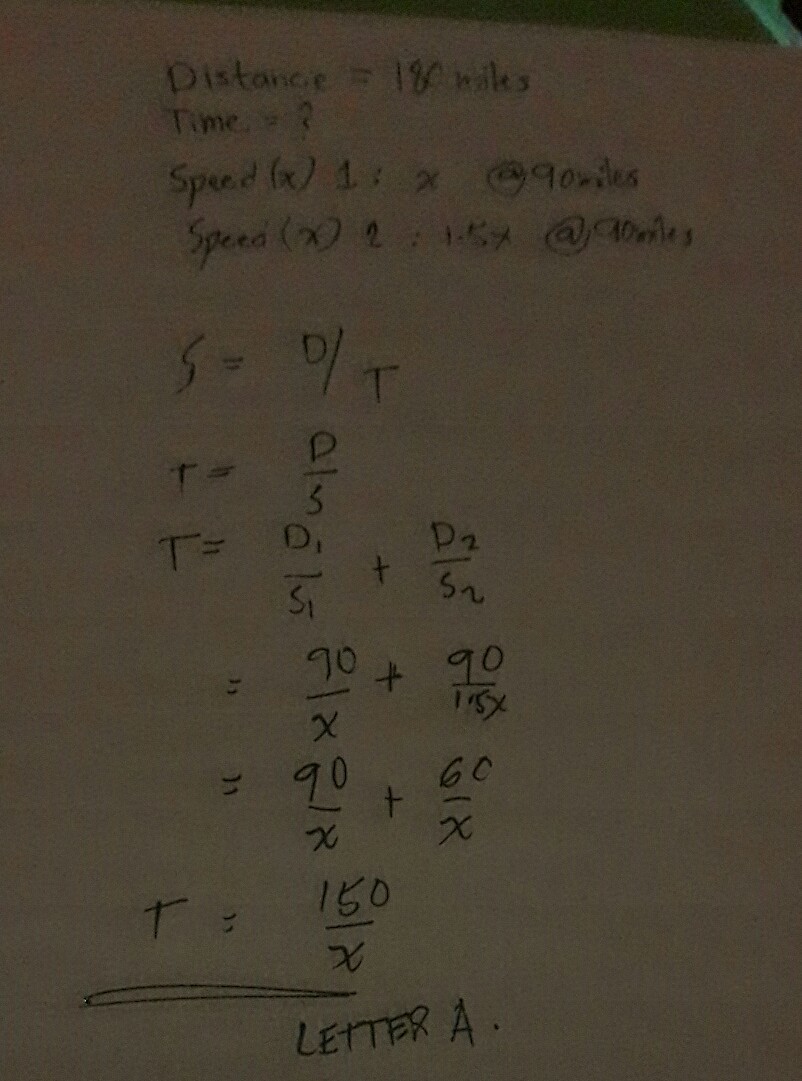 Distance = 180 miles
Time = ?
Speed (x) 1 : x @90miles
Speed (x) 2 : 1.5x @90miles
S = D/T
T = D/S
T = D₁/S₁ + D₂/S₂
= 90/x + 90/1.5x
= 90/x + 60/x
T = 150/x
LETTER A.